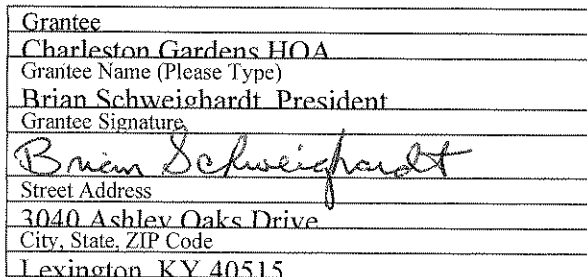 Grantee
Charleston Gardens HOA
Grantee Name (Please Type)
Brian Schweighardt, President
Grantee Signature
Brian Schweighardt
Street Address
3040 Ashley Oaks Drive
City, State, ZIP Code
Lexington, KY 40515